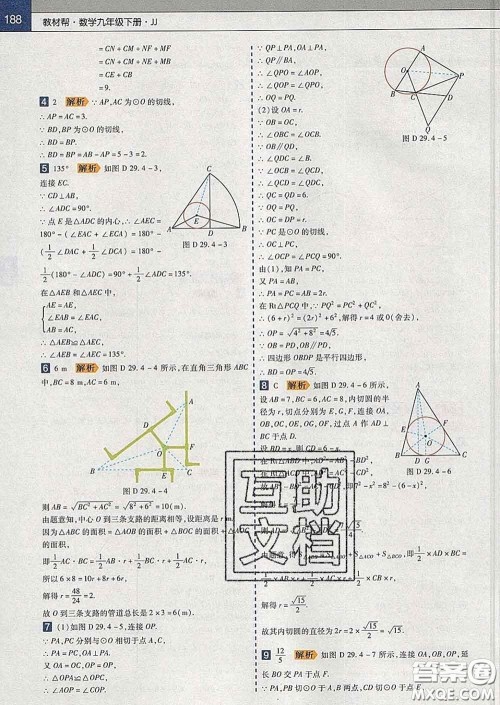 188 教材帮·数学九年级下册·JJ
=CN+CM+NF+MF
=CN+CM+NE+MB
=CE+CB
=9.
4 2 解析 ∵AP,AC为⊙O的切线,
∴AP=AC=3.
∵BD,BP为⊙O的切线,
∴BD=BP=AB-AP=5-3=2.
5 135° 解析 如图D 29.4-3,
连接EC.
∵CD⊥AB,
∴∠ADC=90°.
∵点E是△ADC的内心,∴∠AEC=
180°-(∠EAC+∠ECA)=180°-
(1/2∠DAC+1/2∠DCA)=180°-
1/2(180°-∠ADC)=90°+1/2∠ADC=135°.
图D 29.4-3
在△AEB和△AEC中,
AE=AE,
∠EAB=∠EAC,
AB=AC,
∴△EAB≌△EAC,
∴∠AEB=∠AEC=135°.
6 6 m 解析 如图D 29.4-4所示,在直角三角形ABC
中,BC=8 m,AC=6 m,
图D 29.4-4
则AB=√(BC²+AC²)=√(8²+6²)=10(m).
由题意知,中心O到三条支路的距离相等,设距离是r m.
因为△ABC的面积=△AOB的面积+△BOC的面积+
△AOC的面积,
即1/2AC·BC=1/2AB·r+1/2BC·r+1/2AC·r,
所以6×8=10r+8r+6r,
解得r=48/24=2.
故O到三条支路的管道总长是2×3=6(m).
7 (1)如图D 29.4-5,连接OA,
∵PA,PC分别与⊙O相切于点A,C,
∴∠APO=∠CPO,OA⊥AP.
又OA=OC,OP=OP,
∴△OAP≌△OCP,
∴∠AOP=∠COP.
∵QP⊥PA,OA⊥PA,
∴QP∥OA,
∴∠QPO=∠AOP,
∴∠QPO=∠COP,
∴OQ=PQ.
(2)设OA=r.
∵OB=OC,
∴∠OBC=∠OCB.
∵OB∥QD,
∴∠QDC=∠OBC.
∵∠OCB=∠QCD,
∴∠QCD=∠QDC,
∴QC=QD=6.
∵QO=QP,
∴OC=DP=r.
∵PC是⊙O的切线,
∴OC⊥PC,
∴∠OCP=∠PCQ=90°.
由(1),知PA=PC,
又PA=OA,
∴PA=PC=AB=2r.
在Rt△PCQ中,∵PQ²=PC²+QC²,
∴(6+r)²=(2r)²+6²,解得r=4或0(舍去),
∴OP=√(4²+8²)=4√5.
∵OB=PD,OB∥PD,
∴四边形OBDP是平行四边形,
∴BD=OP=4√5.
图D 29.4-5
8 C 解析 如图D 29.4-6所示,
设AB=7,BC=8,AC=5,内切圆的半
径为r,切点分别为E,G,F,连接OA,
OB,OC,OE,OG,OF,过点A作AD⊥
BC于点D.
图D 29.4-6
设BD=x,则CD=8-x.
互助文档
解得r=√15/2.
故其内切圆的直径为2r=2×√15/2
9 12/5 解析 如图D 29.4-7所示,连接OA,OB,延
长BO交PA于点F.
∵PA,PB切⊙O于A,B两点,CD切⊙O于点E,
答案圈
MXQE.COM